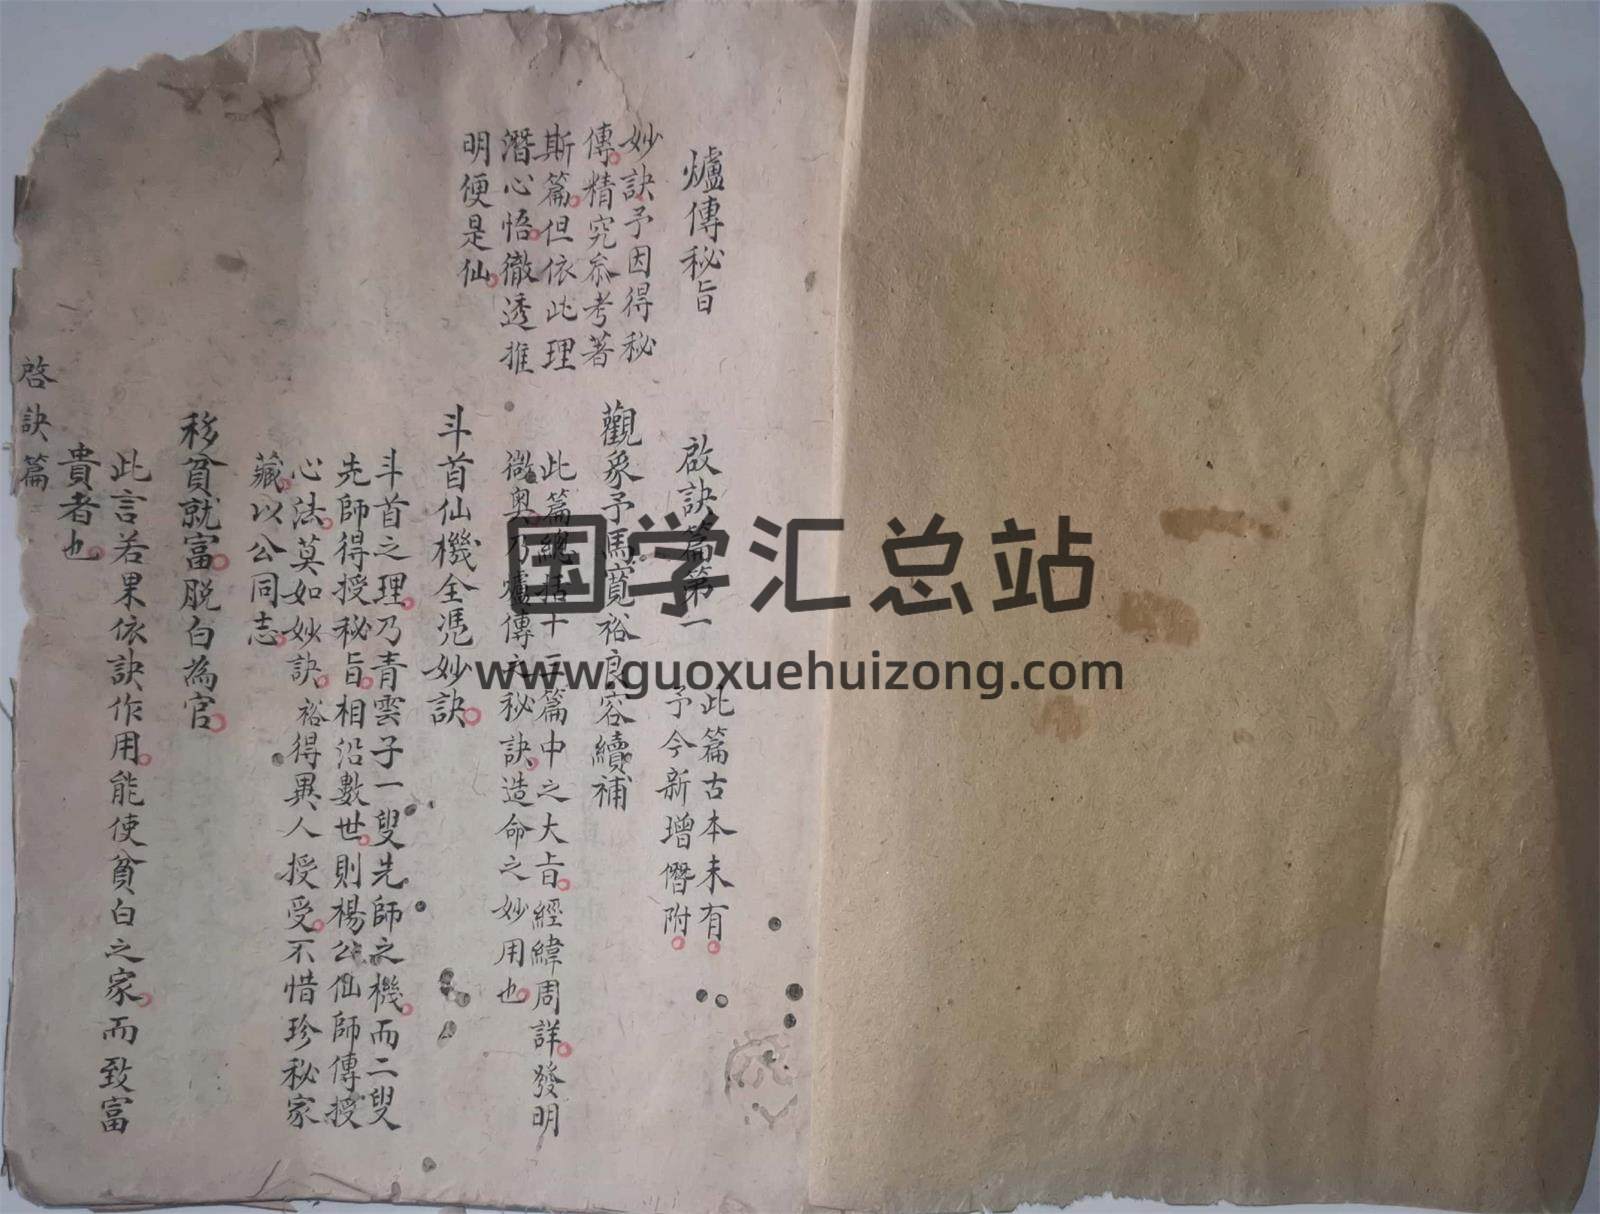 爐傳秘旨
妙訣予因得秘
傳精究叅考著
斯篇但依此理
潛心悟徹透推
明便是仙
啟訣篇第一
此篇古本未有
予今新增僭附
觀象予馬寬裕良容續補
此篇總括十二篇中之大旨經緯周詳發明
微奥乃爐傳之秘訣造命之妙用也
斗首仙機全凴妙訣
斗首之理乃青雲子一叟先師之機而二叟
先師得授秘旨相沿數世則楊公仙師傳授
心法莫如妙訣裕得異人授受不惜珍秘家
藏以公同志
移貧就富脱白為官
此言若果依訣作用能使貧白之家而致富
貴者也
啓訣篇
国学汇总站
www.guoxuehuizong.com